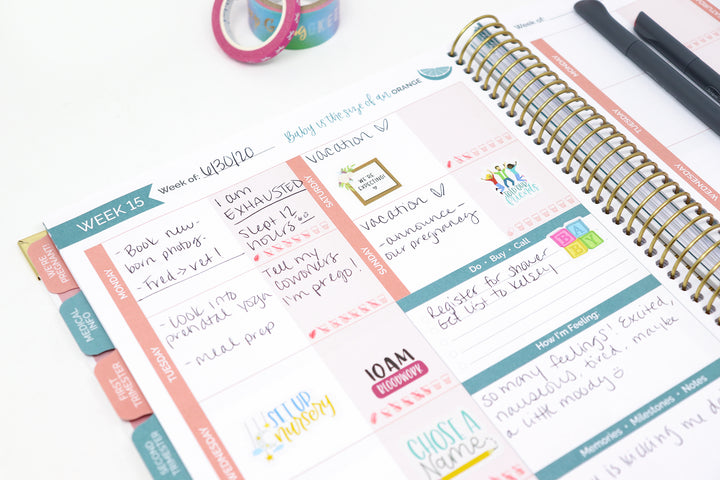 Week of:
WEEK 15
Week of: 6/30/20
Baby is the size of an ORANGE
MONDAY
- Book new-
born photos.
- Fred → vet!
I am
EXHAUSTED
Slept 12
hours
TUESDAY
- Look into
prenatal yoga
- meal prep
Tell my
coworkers
I'm prego!
10AM
BLOODWORK
WEDNESDAY
SET UP
nursery
CHOSE A
Name
SATURDAY
vacation ♡
WE'RE
EXPECTING!
SUNDAY
vacation ♡
- announce -
our pregnancy
Do • Buy • Call
BABY
Register for shower
Get list to Kelsey
How I'm Feeling:
so many feelings! Excited,
nauseous, tired, maybe
a little moody ☺
Memories • Milestones • Notes
is kicking me
WE'RE
PREGNANT!
MEDICAL
INFO
FIRST
TRIMESTER
SECOND
TRIMESTER
MONDAY
TUESDAY
WEDNESDAY
SATURDAY